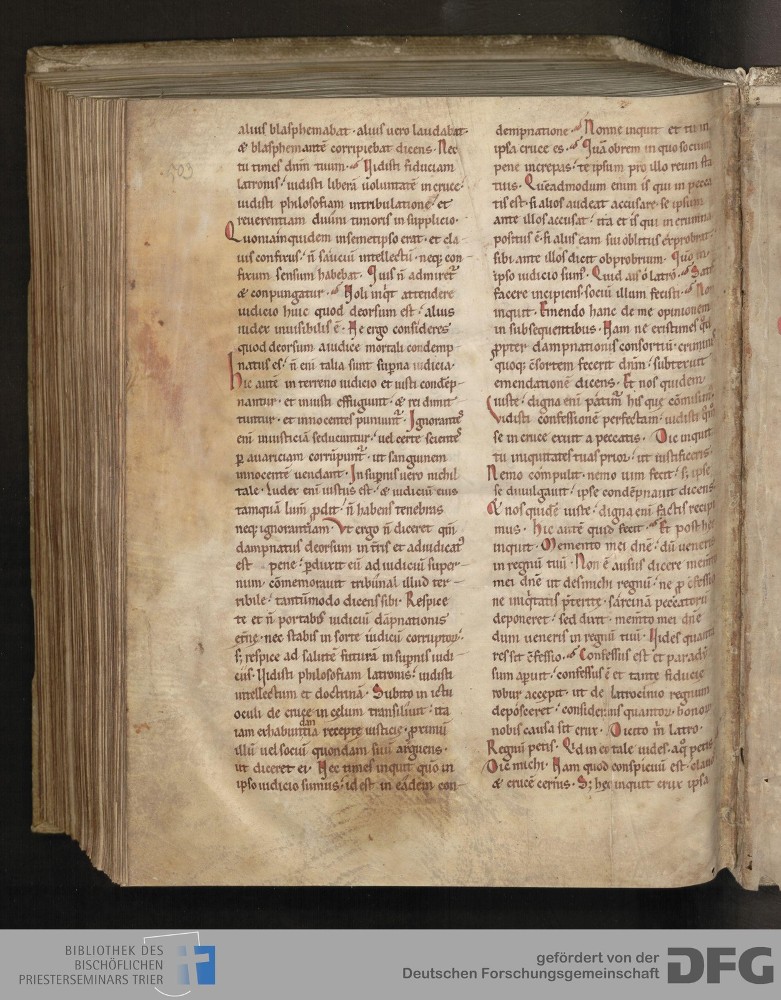 aliuſ blaſphemabat · aliuſ uero laudabat ·
& blaſphemantē corripiebat dicens · Nec
tu times dn̄m tuum · Uidiſti fiduciam
latroniſ · uidiſti liberā uoluntatē in cruce ·
uidiſti philoſofiam in tribulatione · et
reuerentiam diuini timoris in ſupplicio ·
Quoniam quidem in ſemetipſo erat · et cla
uiſ confixus · n̄ ſauciū intellectū · neq; con
fixum ſenſum habebat · Quis n̄ admiret᷑
& conpungatur · Noli inq̇t attendere
iudicio huic quod deorſum est · aliuſ
iudex inuiſibilis ē · Ne ergo conſideres
quod deorſum a iudice mortali condemp
natuſ eſ · n̄ eni talia ſunt ſup̄na iudicia ·
Hic autē in terreno iudicio et iuſti condēp
nantur · et iniuſti effugiunt · & rei dimit
tuntur · et innocentes puniunt᷑ · Ignorantes
eni iniuſticiā ſeducuntur · uel certe ſcientes
ꝑ auariciam corrūpunt᷑ · ut ſanguinem
innocentē uendant · In ſup̄nis uero nichil
tale · Iudex eni iuſtus eſt · & iudiciū eius
tamquā lum̄ ꝓdit · n̄ habens tenebras
neq; ignorantiam · Ut ergo n̄ diceret qm̄
dampnatus deorſum in t̄ris et adiudicat᷒
eſt pene · ꝑduxit eū ad iudiciū ſuper
num · cōmemorauit tribunal illud ter
ribile · tantūmodo dicens ſibi · Reſpice
te et n̄ portabis iudiciū dāpnationis
et̄nę · nec ſtabis in ſorte iudicū corruptoꝝ ·
ſ; reſpice ad ſalutē futurā in ſupnis iudi
ciis · Uidiſti philoſofiam latronis · uidiſti
intellectum et doctrinā · Subito in ictu
oculi de cruce in cęlum tranſiliuit · ita
iam exhabundam recepte iuſticię · proximū
illū uel ſociū quondam ſuū arguens ·
ut diceret ei · Nec times inquit quō in
ipſo iudicio ſumus · id eſt in eadem con
dempnatione · Nonne inquit et tu in
ipſa cruce es · Quā obrem in quo ſocium
pene increpas · te ipſum pro illo reum ſta
tuis · Quēadmodum enim is qui in pecca
tis eſt · ſi alios audeat accuſare · ſe ipſum
ante illos accuſat · ita et is qui in crimina
poſitus ē · ſi aliis eam ſui oblitus exprobrat
ſibi ante illos dicit obprobrium · Quō in
ipſo iudicio ſum᷒ · Quid ais o latro · Satis
facere incipiens · ſociū illum feciſti · Non
inquit · Emendo hanc de me opinionem
in ſubſequentibus · Nam ne exiſtimes qd
ꝓpter dampnationis conſortiū · criminis
quoq; cſortem fecerit dnm · ſubtexuit
emendationē dicens · Et nos quidem
iuſte · digna eni patim̄ his que cōmiſim᷒ ·
Vidiſti confeſſionē perfectam · uidiſti qm̄
ſe in cruce exuit a peccatis · Dic inquit
tu iniquitates tuas prior · ut iuſtificeris ·
Nemo cōmpulit · nemo uim fecit · ſ; ipſe
ſe diuulgauit · ipſe condēpnauit dicens
Et nos quidē iuſte · digna eni factis recipi
mus · Hic autē quid fecit · Et poſt hec
inquit · Memento mei dnē · dū ueneris
in regnū tuū · Non ē auſus dicere memto
mei dnē ut des michi regnū · ne p̄ cfeſſio
ne iniq̇tatis pterite · ſarcinā peccatorū
deponeret · ſed dixit · memto mei dnē
dum ueneris in regnū tuū · Uides quanta
res ſit cfeſſio · Confeſſus eſt et parady
ſum apuit · confeſſus ē et tante fiducie
robur accepit · ut de latrocinio regnum
depoſceret · conſideriuſ quantoꝝ bonoꝝ
nobis cauſa ſit crux · Dicito m̄ latro ·
Regnū petis · Qd in ex tale uides · aq petis
Dic michi · Nam quod conſpicuū eſt · claui
& crucē cernis · S; hęc inquit crux ipſa